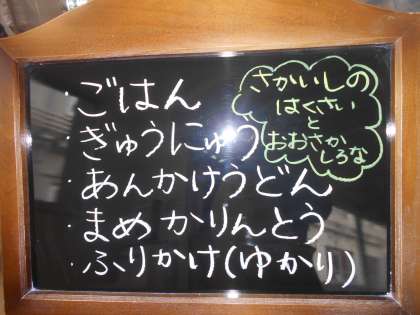 ・ごはん
・ぎゅうにゅう
・あんかけうどん
・まめかりんとう
・ふりかけ(ゆかり)
さかいしの
はくさい
と
おおさか
しろな